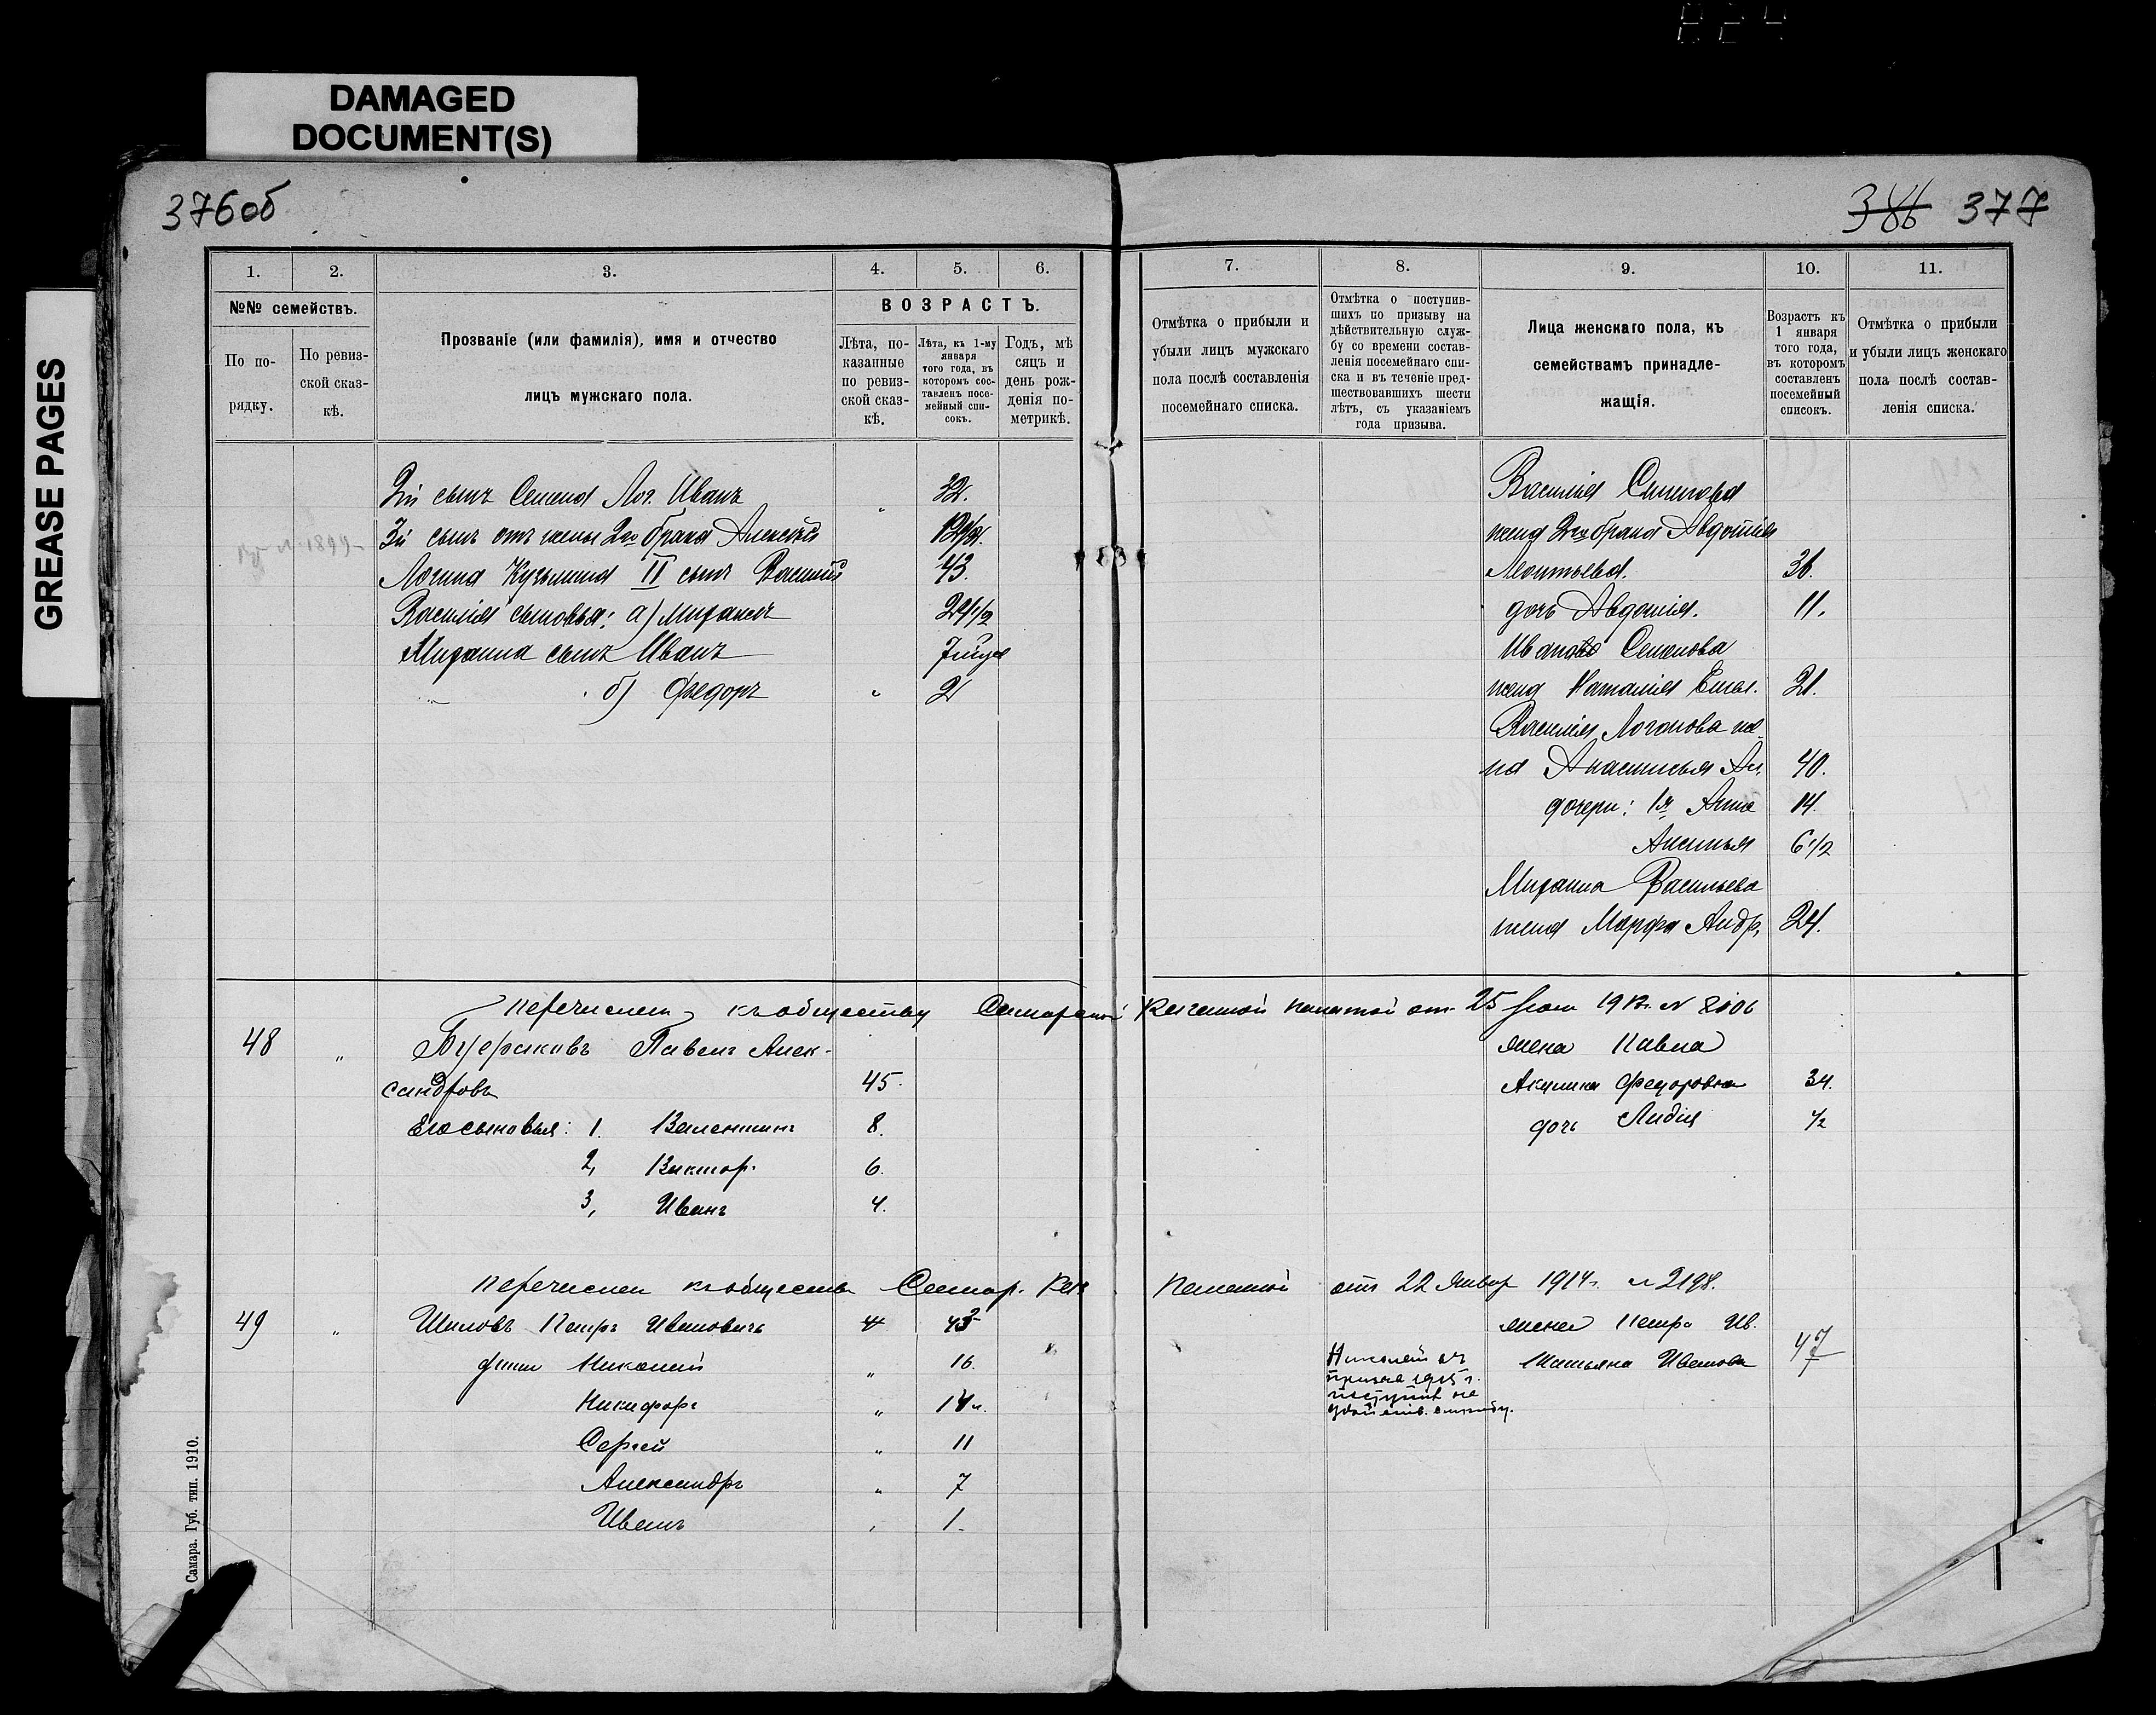 DAMAGED
DOCUMENT(S)
GREASE PAGES
376об
386 377
1. 2. 3. 4. 5. 6.
№№ семействъ.
По по-
рядку.
По ревиз-
ской сказ-
кѣ.
Прозваніе (или фамилія), имя и отчество
лицъ мужскаго пола.
ВОЗРАСТЪ.
Лѣта, по-
казанные
по ревиз-
ской сказ-
кѣ.
Лѣта, къ 1-му
января
того года, въ
которомъ сос-
тавленъ посе-
мейный спи-
сокъ.
Годъ, мѣ
сяцъ и
день рож-
денія по-
метрикѣ.
2й сынъ Семена Лог. Иванъ 32.
1899
3й сынъ отъ жены 2го брака Алексѣй
Логина Кузьмина II сынъ Василій 43.
Василія сыновья: а) Михаилъ 21 1/2
Михаила сынъ Иванъ
б) Федоръ 2
Перечислен къ обществу Самарской Казенной палатой от 25 1912г. № 8106
48 " Павелъ Алек-
сандровъ 45.
Его сыновья: 1. Валентинъ 8.
2, Викторъ 6.
3, Иванъ 4.
Перечислен къ обществу Самар. Каз Палатой отъ 22 Январ 1914г. № 2198.
49 " Шиловъ Петръ Ивановичъ 43
Николай " 16.
Никифоръ " 14
Сергѣй " 11
Александръ " 7
Иванъ 1.
Самара. Губ. тип. 1910.
7. 8. 9. 10. 11.
Отмѣтка о прибыли и
убыли лицъ мужскаго
пола послѣ составленія
посемейнаго списка.
Отмѣтка о поступив-
шихъ по призыву на
дѣйствительную служ-
бу со времени состав-
ленія посемейнаго спи-
ска и въ теченіе пред-
шествовавшихъ шести
лѣтъ, съ указаніемъ
года призыва.
Лица женскаго пола, къ
семействамъ принадле-
жащія.
Возрастъ къ
1 января
того года,
въ которомъ
составленъ
посемейный
списокъ.
Отмѣтка о прибыли
и убыли лицъ женскаго
пола послѣ состав-
ленія списка.
Василія Семенова
жена 2го брака Авдотія
Леонтьева. 36.
дочь Авдотія. 11.
Иванова Семенова
жена Наталія 21.
Василія Логинова же-
на Анастасья 40.
дочери: 1я Анна 14.
Аксинья 6 1/2
Михаила Васильева
жена Марфа Андр. 24.
жена Павла
Акулина Федоровна 34.
дочь Лидія 1/2
жена Петра Ив.
Татьяна Иванова 47
Николай въ
призыв 1915 г.
поступил на
дѣйств. службу.